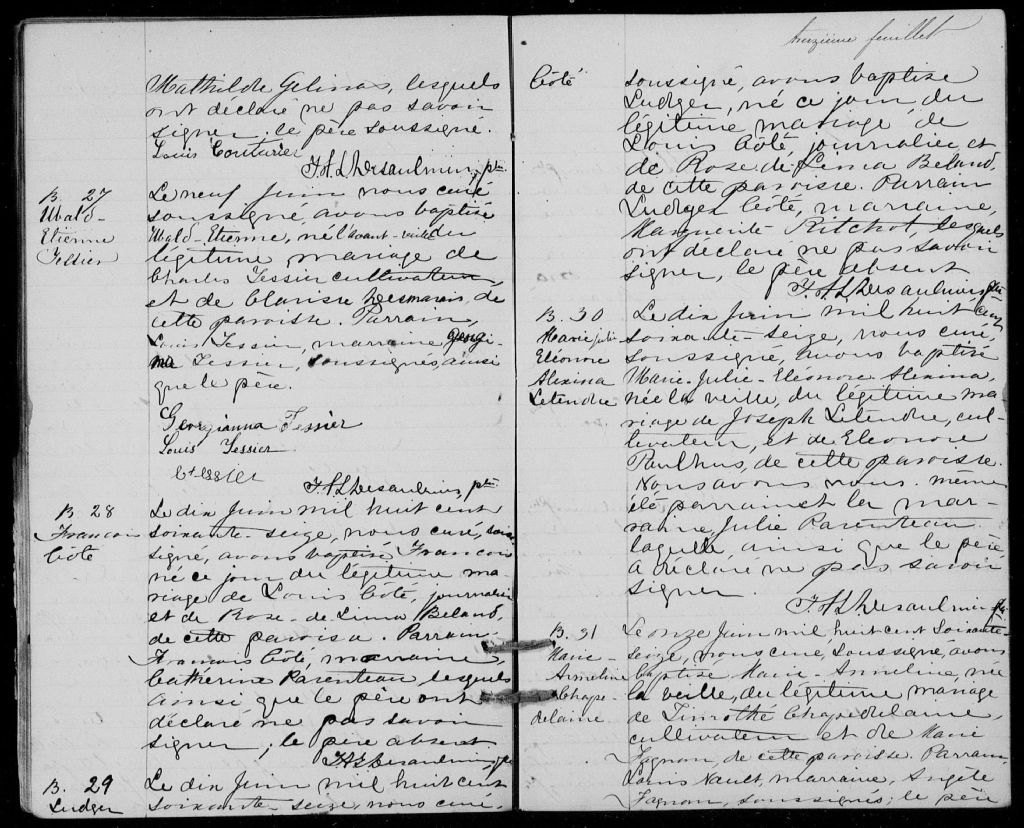 Mathilde Gelinas, lesquels
ont déclaré ne pas savoir
signer; le père soussigné.
Louis Couturier
J.H.L. Desaulniers, ptre
B. 27
Ubald-
Etienne
Tessier
Le neuf Juin nous curé
soussigné, avons baptisé
Ubald-Etienne, né l'avant-veille du
légitime mariage de
Charles Tessier cultivateur
et de Clarisse Desmarais, de
cette paroisse. Parrain,
Louis Tessier, marraine, Georgi-
na Tessier, soussignés ainsi
que le père.
Georgianna Tessier
Louis Tessier
Ct essier
J.H.L. Desaulniers, ptre
B 28
Francois
Côté
Le dix Juin mil huit cent
soixante-seize, nous curé, sous
signé, avons baptisé Francois
né ce jour du légitime ma-
riage de Louis Côté, journalier
et de Rose-de-Lima Beland,
de cette paroisse. Parrain-
Francois Côté, marraine,
Catherine Parenteau, lesquels
ainsi que le père ont
déclaré ne pas savoir
signer; le père absent
J.H.L. Desaulniers, ptre
B. 29
Ludger
Le dix Juin mil huit cent
soixante-seize, nous curé,
treizième feuillet
Côté
soussigné, avons baptisé
Ludger, né ce jour du
légitime mariage de
Louis Côté journalier et
de Rose-de-Lima Beland,
de cette paroisse. Parrain
Ludger Côté, marraine,
Marguerite Ritchot, lesquels
ont déclaré ne pas savoir
signer, le père absent
J.H.L. Desaulniers ptre
B. 30
Marie Julie
Eléonore
Alexina
Letendre
Le dix Juin mil huit cent
soixante-seize, nous curé,
soussigné, avons baptisé
Marie-Julie-Eléonore Alexina,
née la veille, du légitime ma-
riage de Joseph Letendre, cul-
tivateur, et de Eleonore
Paulhus, de cette paroisse.
Nous avons nous-même
été parrain et la mar-
raine, Julie Parenteau
laquelle, ainsi que le père,
a déclaré ne pas savoir
signer.
J.H.L. Desaulniers ptre
B. 31
Marie-
Armeline
Chape-
delaine
Le onze Juin mil huit cent soixante-
seize, nous curé, soussigné, avons
baptisé Marie-Armeline, née
la veille, du légitime mariage
de Timothé Chapedelaine,
cultivateur et de Marie
Fagnan, de cette paroisse. Parrain
Louis Nault, marraine, Angèle
Fagnan, soussignés; le père